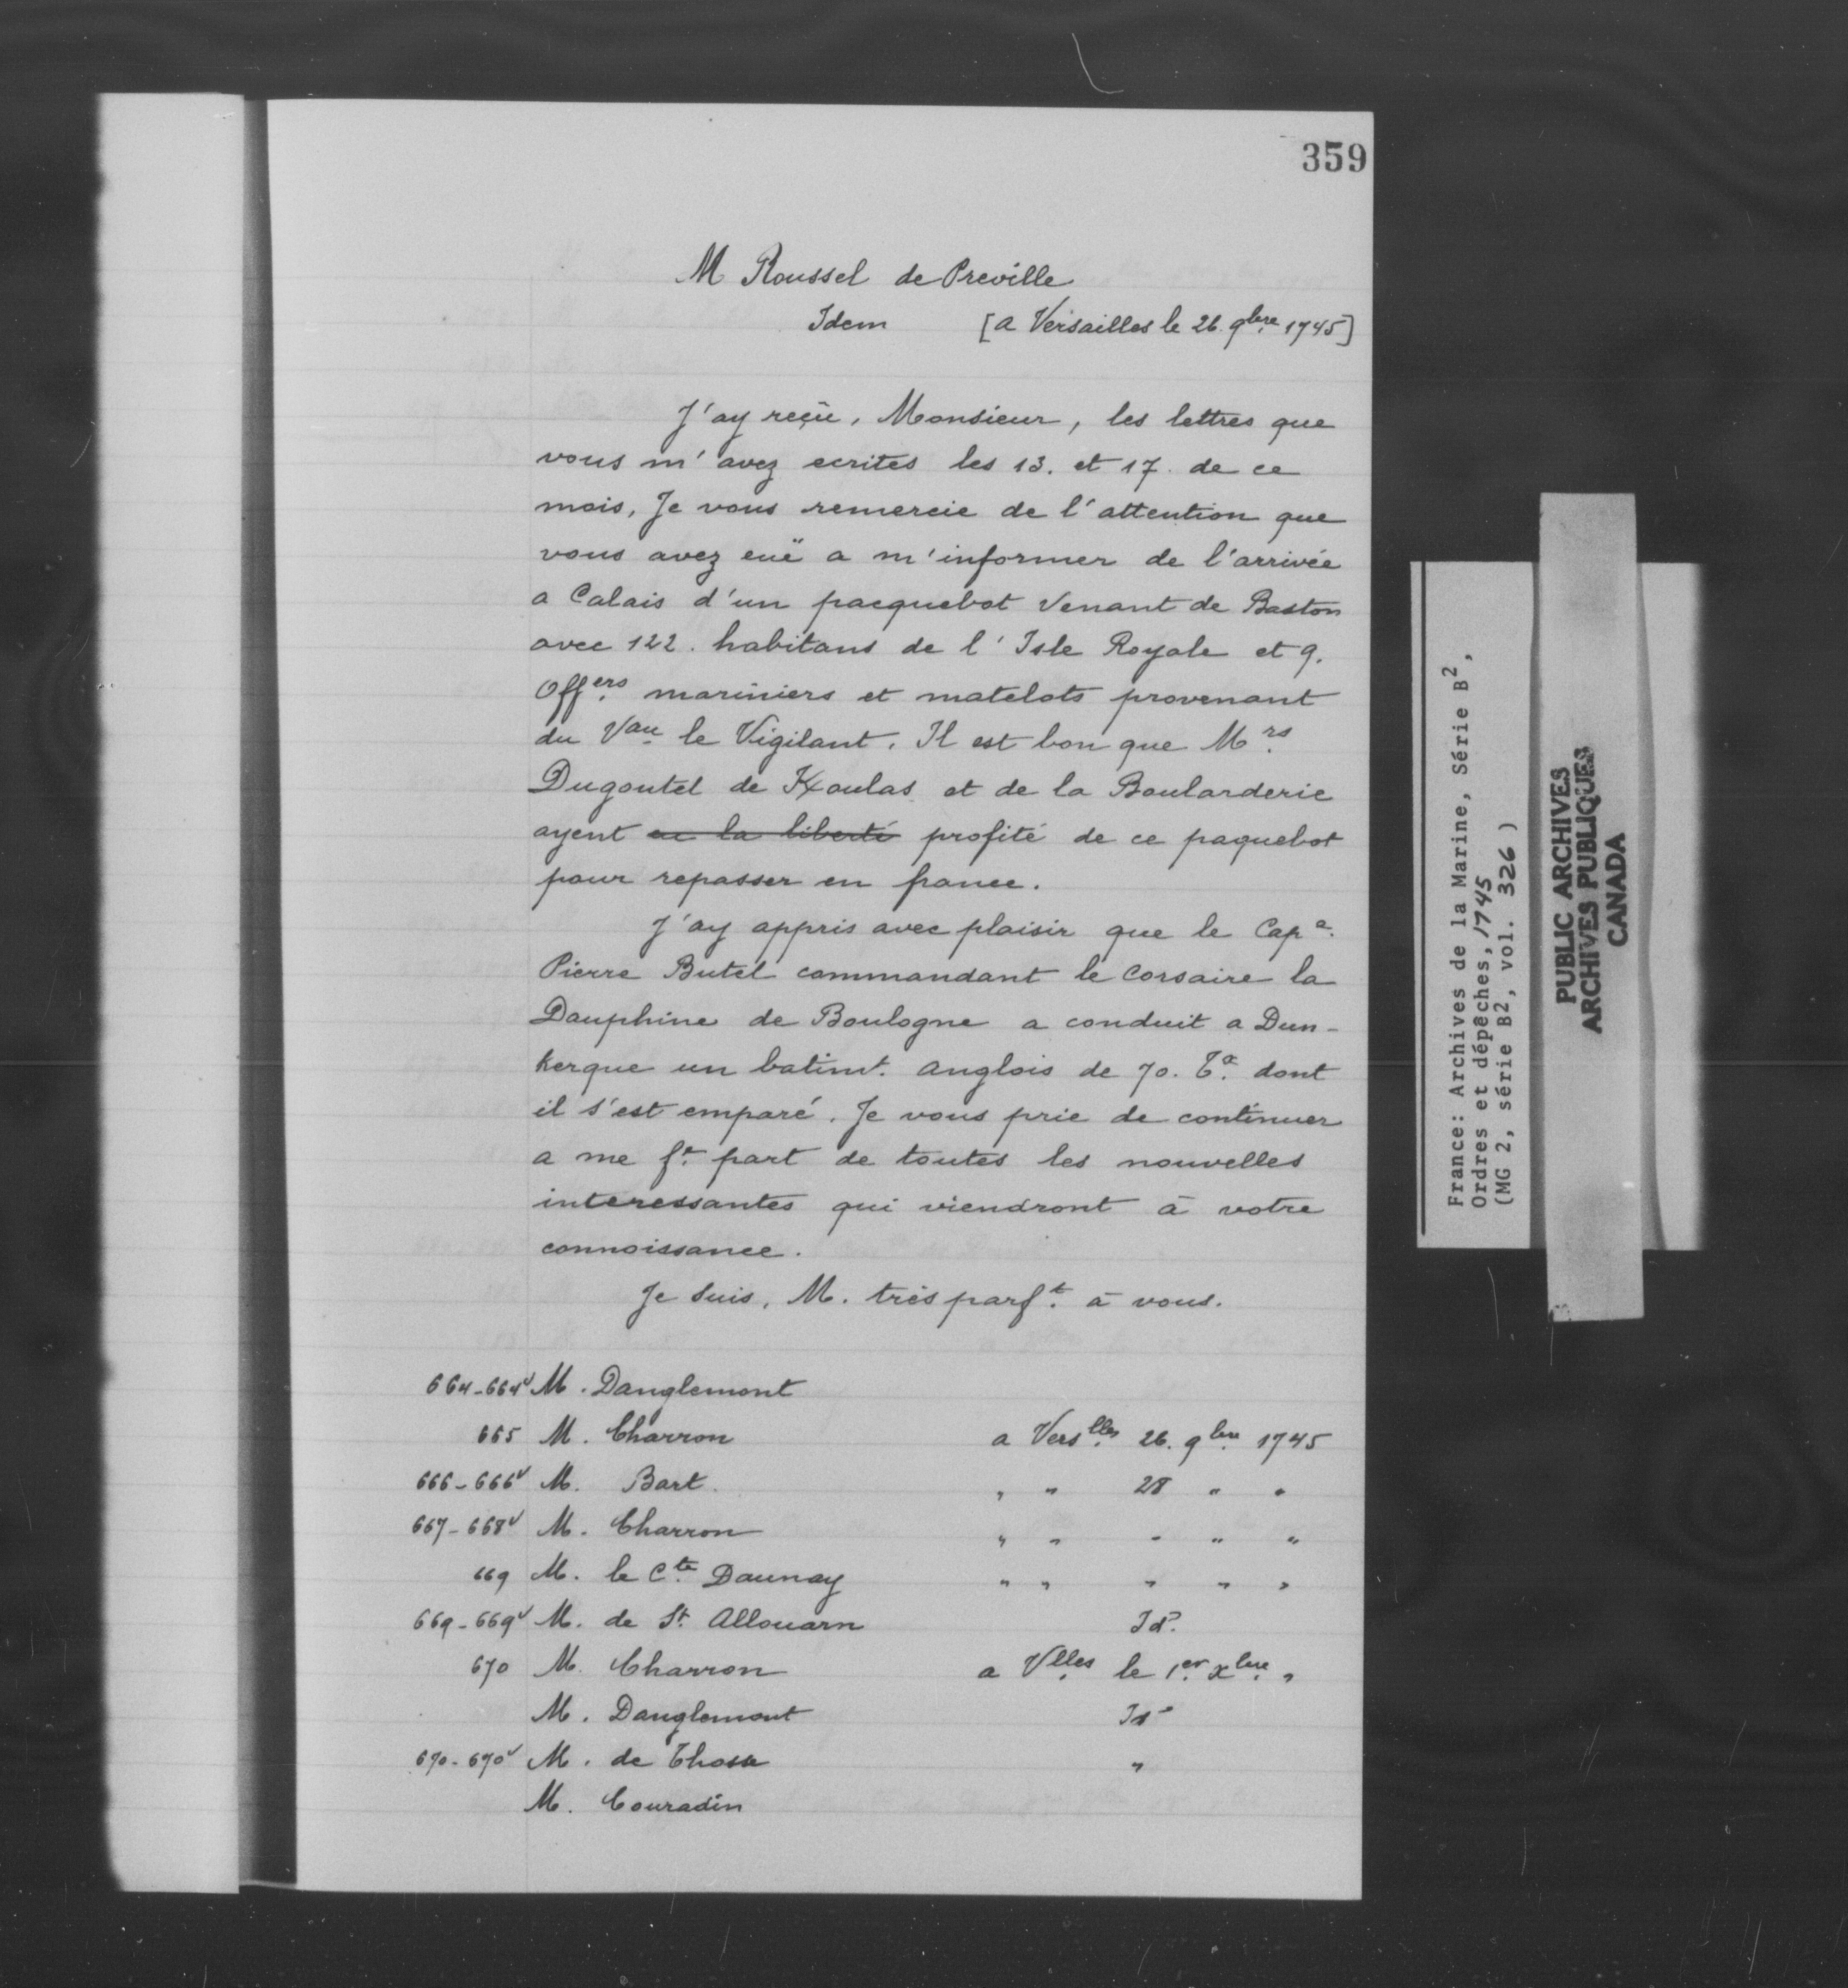 359
M Roussel de Preville
Idem [a Versailles le 26. 9bre 1745]
J'ay reçû, Monsieur, les lettres que
vous m'avez ecrites les 13. et 17. de ce
mois, Je vous remercie de l'attention que
vous avez euë a m'informer de l'arrivée
a Calais d'un pacquebot Venant de Baston
avec 122. habitans de l'Isle Royale et 9.
Offers mariniers et matelots provenant
du Vau le Vigilant. Il est bon que Mrs
Dugoutel de Kxoulas et de la Boularderie
ayent eu la liberté profité de ce paquebot
pour repasser en france.
J'ay appris avec plaisir que le Cape.
Pierre Butel commandant le Corsaire la
Dauphine de Boulogne a conduit a Dun-
kerque un batimt. anglois de 70. Tx. dont
il s'est emparé. Je vous prie de continuer
a me ft. part de toutes les nouvelles
interessantes qui viendront à votre
connoissance.
Je suis, M. très parft. à vous.
664-664v M. Danglemont
665 M. Charron a Verslles 26. 9bre 1745
666-666v M. Bart. " " 28 " "
667-668v M. Charron " " " " "
669 M. le Cte Daunay " " " " "
669-669v M. de St. Allouarn Ido.
670 M. Charron a Vlles le 1er. Xbre. "
M. Danglemont Ido
670-670v M. de Thosse "
M. Couradin
France: Archives de la Marine, Série B2,
Ordres et dépêches, 1745
(MG 2, série B2, vol. 326 )
PUBLIC ARCHIVES
ARCHIVES PUBLIQUES
CANADA